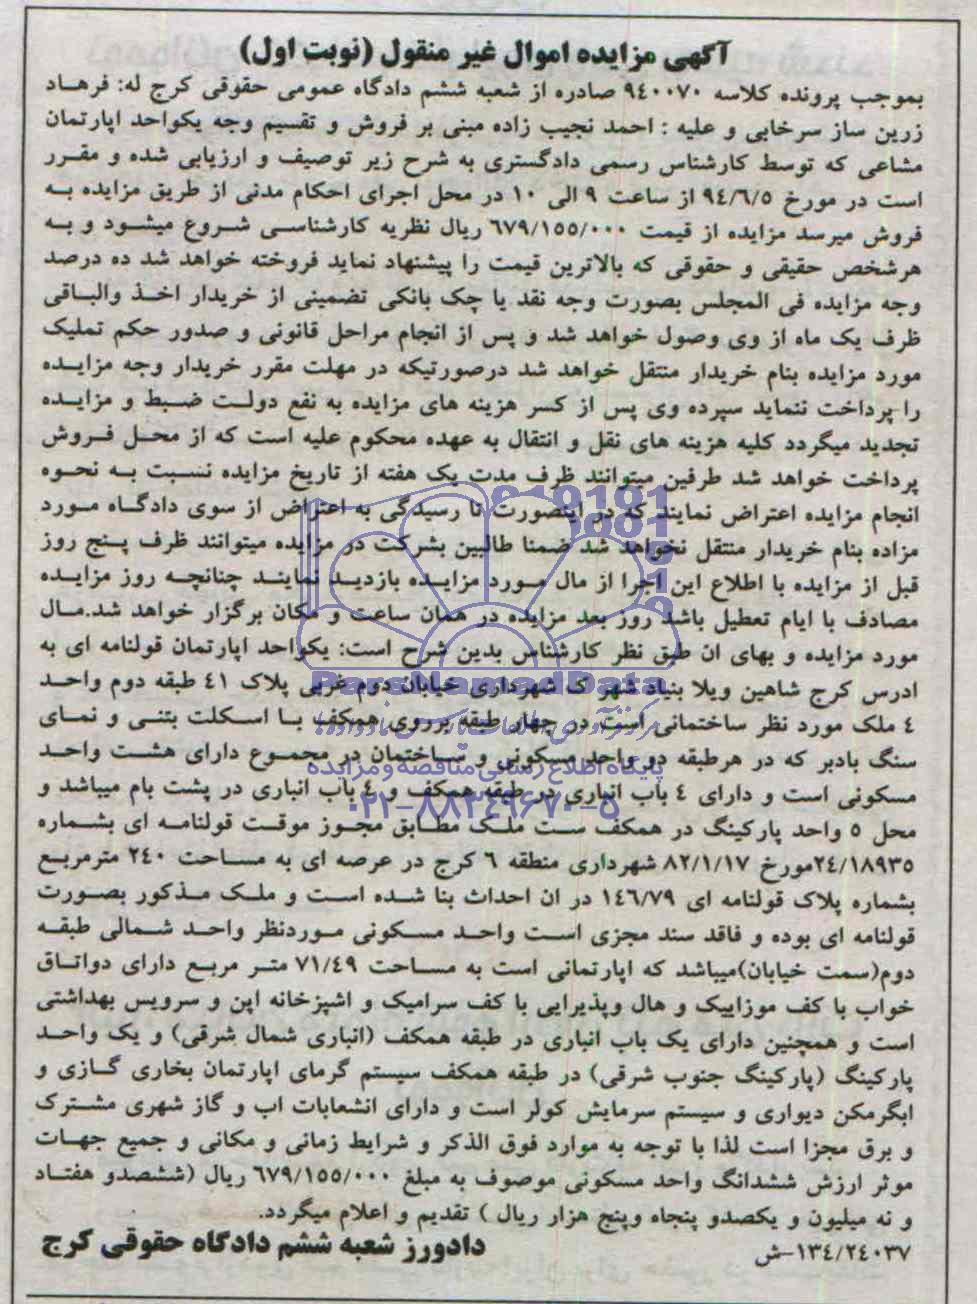 آگهی مزایده اموال غیر منقول (نوبت اول)
بموجب پرونده کلاسه ۹٤۰۰۷۰ صادره از شعبه ششم دادگاه عمومی حقوقی کرج له: فرهاد
زرین ساز سرخابی و علیه : احمد نجیب زاده مبنی بر فروش و تقسیم وجه یکواحد اپارتمان
مشاعی که توسط کارشناس رسمی دادگستری به شرح زیر توصیف و ارزیابی شده و مقرر
است در مورخ ۹٤/٦/۵ از ساعت ۹ الی ۱۰ در محل اجرای احکام مدنی از طریق مزایده به
فروش میرسد مزایده از قیمت ٦۷۹/۱۵۵/۰۰۰ ریال نظریه کارشناسی شروع میشود و به
هرشخص حقیقی و حقوقی که بالاترین قیمت را پیشنهاد نماید فروخته خواهد شد ده درصد
وجه مزایده فی المجلس بصورت وجه نقد یا چک بانکی تضمینی از خریدار اخذ والباقی
ظرف یک ماه از وی وصول خواهد شد و پس از انجام مراحل قانونی و صدور حکم تملیک
مورد مزایده بنام خریدار منتقل خواهد شد درصورتیکه در مهلت مقرر خریدار وجه مزایده
را پرداخت ننماید سپرده وی پس از کسر هزینه های مزایده به نفع دولت ضبط و مزایده
تجدید میگردد کلیه هزینه های نقل و انتقال به عهده محکوم علیه است که از محل فروش
پرداخت خواهد شد طرفین میتوانند ظرف مدت یک هفته از تاریخ مزایده نسبت به نحوه
انجام مزایده اعتراض نمایند که در اینصورت تا رسیدگی به اعتراض از سوی دادگاه مورد
مزاده بنام خریدار منتقل نخواهد شد ضمنا طالبین بشرکت در مزایده میتوانند ظرف پنج روز
قبل از مزایده با اطلاع این اجرا از مال مورد مزایده بازدید نمایند چنانچه روز مزایده
مصادف با ایام تعطیل باشد روز بعد مزایده در همان ساعت و مکان برگزار خواهد شد.مال
مورد مزایده و بهای ان طبق نظر کارشناس بدین شرح است: یکواحد اپارتمان قولنامه ای به
ادرس کرج شاهین ویلا بنیاد شهرک شهرداری خیابان دوم غربی پلاک ٤۱ طبقه دوم واحد
ParsNamadData
٤ ملک مورد نظر ساختمانی است در چهار طبقه برروی همکف با اسکلت بتنی و نمای
سنگ بادبر که در هرطبقه دو واحد مسکونی و ساختمان در مجموع دارای هشت واحد
پایگاه اطلاع رسانی مناقصه و مزایده
مسکونی است و دارای ٤ باب انباری در طبقه همکف و ٤ باب انباری در پشت بام میباشد و
۰۲۱-۸۸۳٤۹٦۷۰-۵
محل ۵ واحد پارکینگ در همکف ست ملک مطابق مجوز موقت قولنامه ای بشماره
۲٤/۱۸۹۳۵مورخ ۸۲/۱/۱۷ شهرداری منطقه ٦ کرج در عرصه ای به مساحت ۲٤۰ مترمربع
بشماره پلاک قولنامه ای ۱٤٦/۷۹ در ان احداث بنا شده است و ملک مذکور بصورت
قولنامه ای بوده و فاقد سند مجزی است واحد مسکونی موردنظر واحد شمالی طبقه
دوم(سمت خیابان)میباشد که اپارتمانی است به مساحت ۷۱/٤۹ متر مربع دارای دواتاق
خواب با کف موزاییک و هال وپذیرایی با کف سرامیک و اشپزخانه اپن و سرویس بهداشتی
است و همچنین دارای یک باب انباری در طبقه همکف (انباری شمال شرقی) و یک واحد
پارکینگ (پارکینگ جنوب شرقی) در طبقه همکف سیستم گرمای اپارتمان بخاری گازی و
ابگرمکن دیواری و سیستم سرمایش کولر است و دارای انشعابات اب و گاز شهری مشترک
و برق مجزا است لذا با توجه به موارد فوق الذکر و شرایط زمانی و مکانی و جمیع جهات
موثر ارزش ششدانگ واحد مسکونی موصوف به مبلغ ٦۷۹/۱۵۵/۰۰۰ ریال (ششصدو هفتاد
و نه میلیون و یکصدو پنجاه وپنج هزار ریال ) تقدیم و اعلام میگردد.
دادورز شعبه ششم دادگاه حقوقی کرج
۱۳٤/۲٤۰۳۷-ش